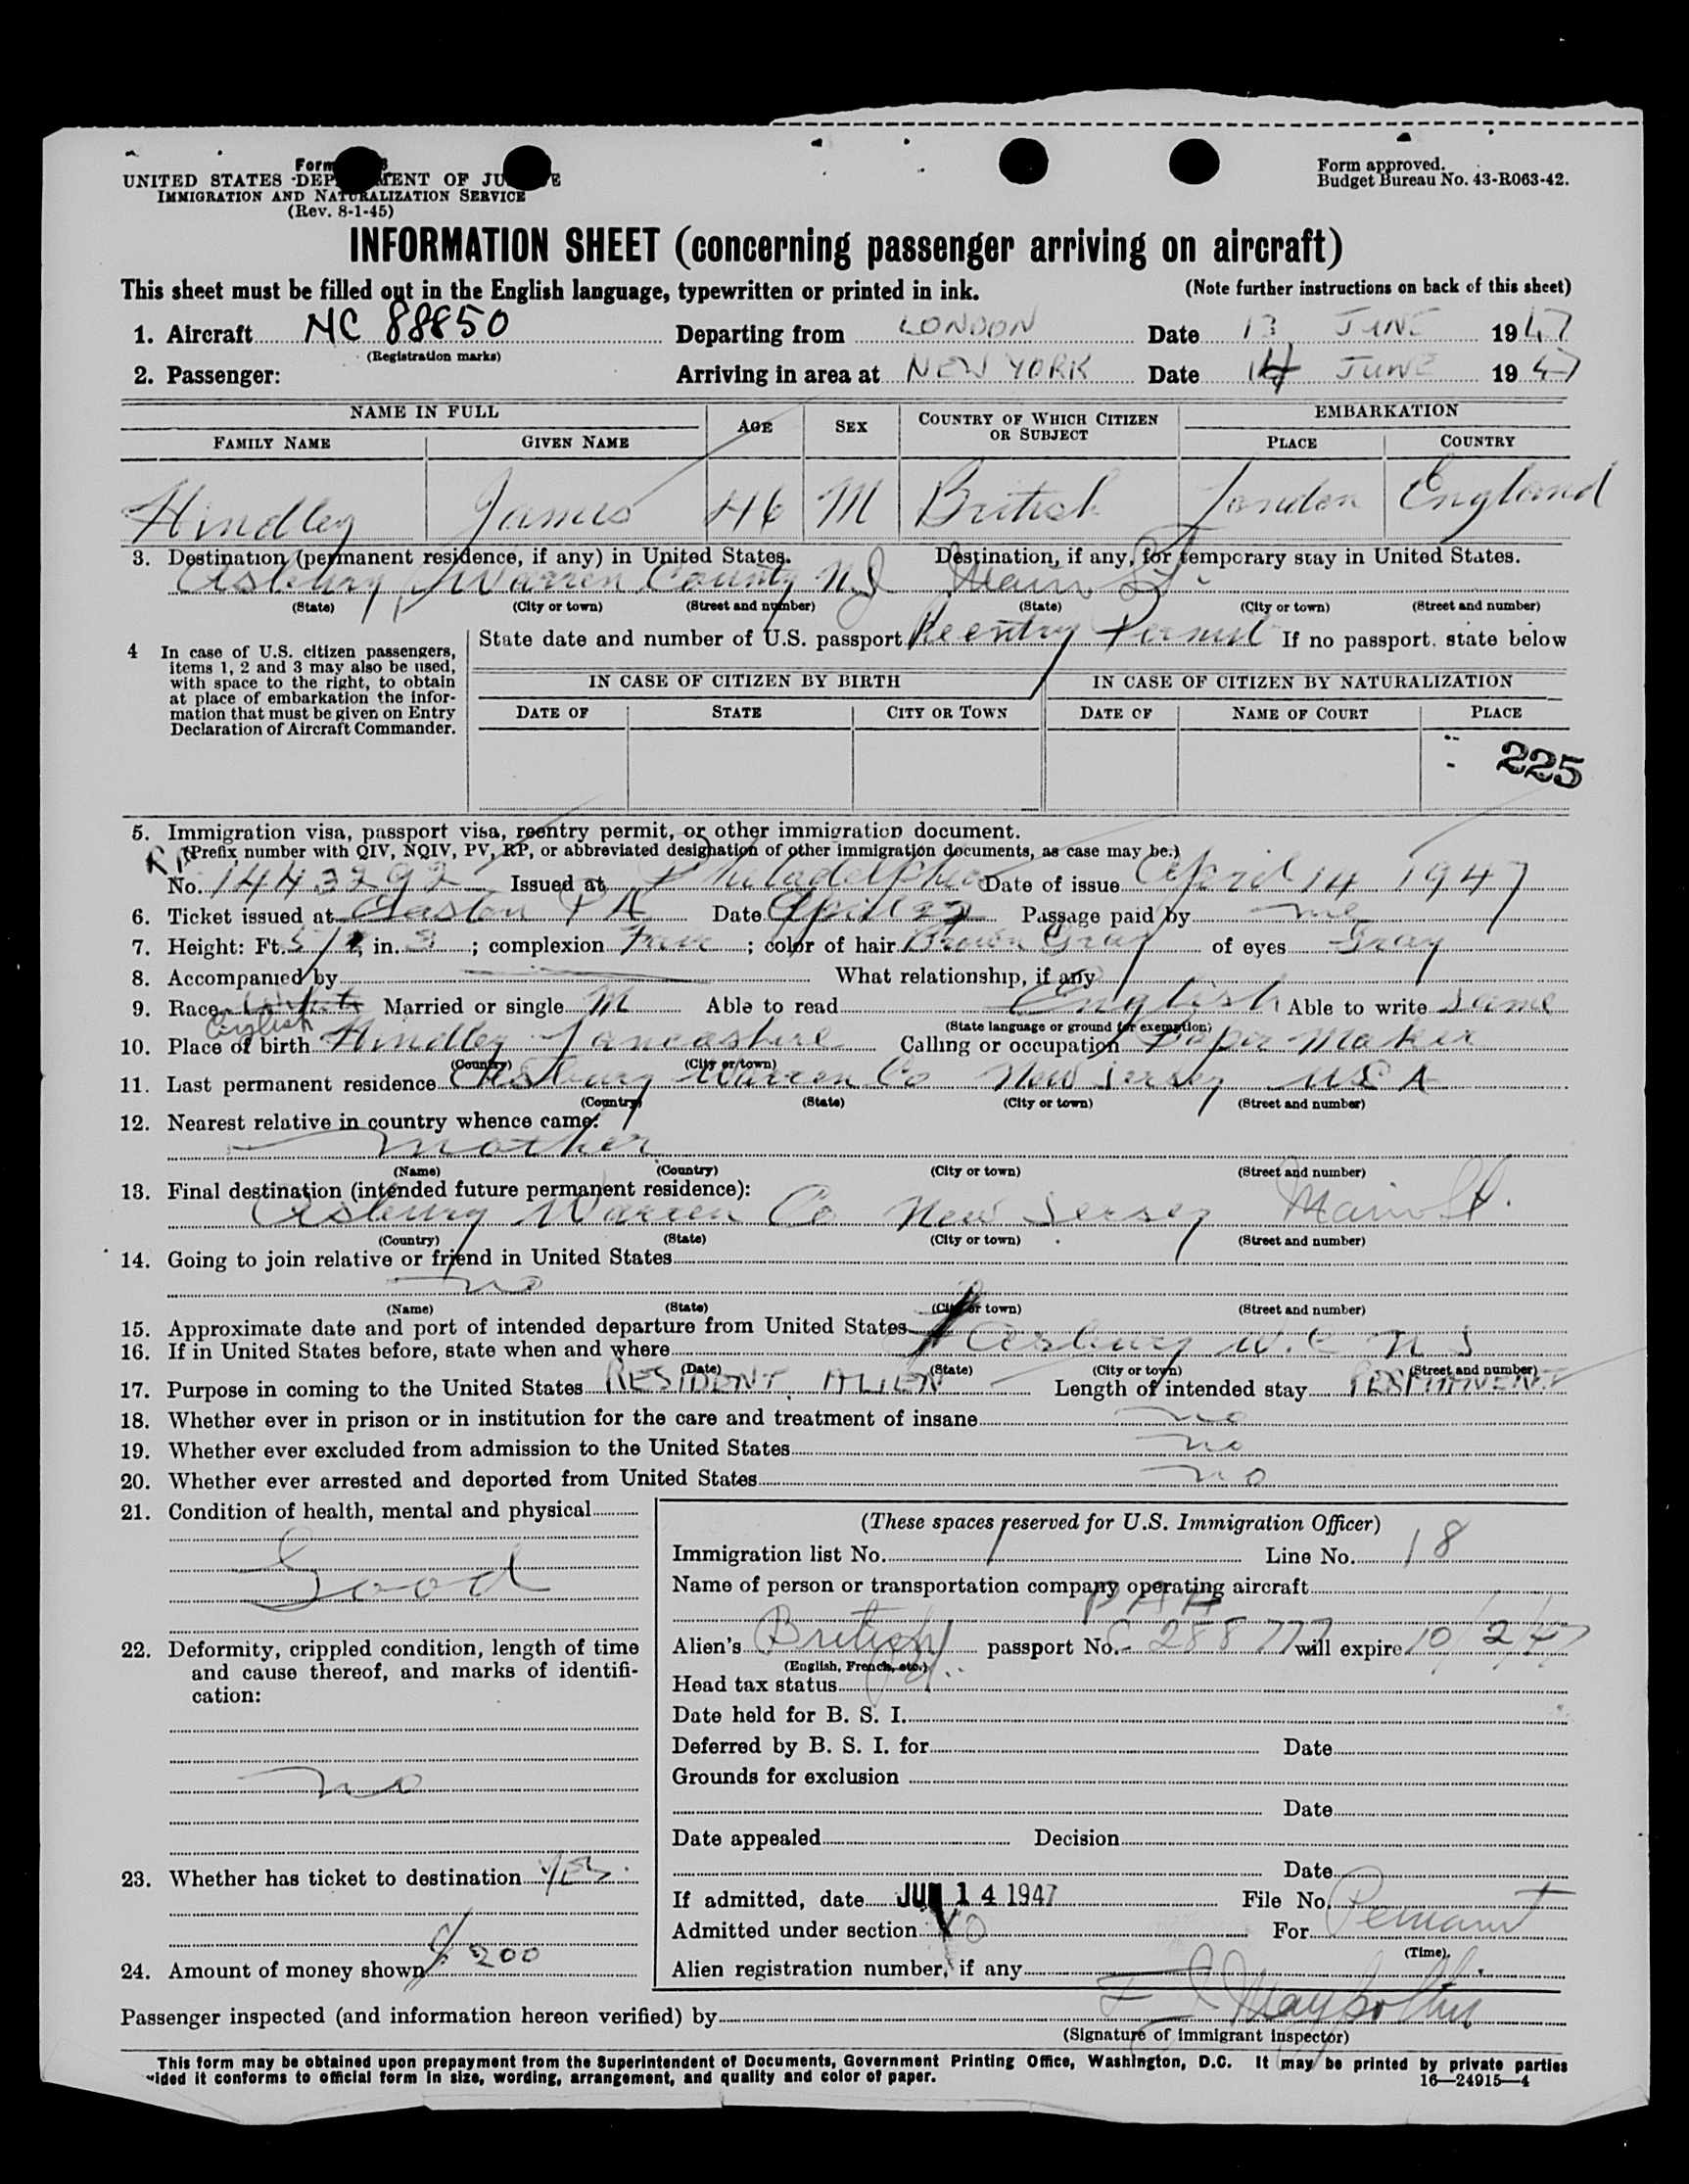 Form
UNITED STATES DEP MENT OF JU E
IMMIGRATION AND NATURALIZATION SERVICE
(Rev. 8-1-45)
Form approved.
Budget Bureau No. 43-R063-42.
INFORMATION SHEET (concerning passenger arriving on aircraft)
This sheet must be filled out in the English language, typewritten or printed in ink. (Note further instructions on back of this sheet)
1. Aircraft NC 88850 Departing from LONDON Date 13 JUNE 1947
(Registration marks)
2. Passenger: Arriving in area at NEW YORK Date 14 JUNE 1947
NAME IN FULL AGE SEX COUNTRY OF WHICH CITIZEN OR SUBJECT EMBARKATION
FAMILY NAME GIVEN NAME PLACE COUNTRY
Hindley James 46 M British London England
3. Destination (permanent residence, if any) in United States. Destination, if any, for temporary stay in United States.
Asbury Warren County N.J Main St.
(State) (City or town) (Street and number) (State) (City or town) (Street and number)
4 In case of U.S. citizen passengers, items 1, 2 and 3 may also be used, with space to the right, to obtain at place of embarkation the infor-mation that must be given on Entry Declaration of Aircraft Commander.
State date and number of U.S. passport Reentry Permit If no passport, state below
IN CASE OF CITIZEN BY BIRTH IN CASE OF CITIZEN BY NATURALIZATION
DATE OF STATE CITY OR TOWN DATE OF NAME OF COURT PLACE
225
5. Immigration visa, passport visa, reentry permit, or other immigration document.
(Prefix number with QIV, NQIV, PV, RP, or abbreviated designation of other immigration documents, as case may be.)
RP
No. 1443292 Issued at Philadelphia Date of issue April 14 1947
6. Ticket issued at Easton PA Date April 22 Passage paid by me
7. Height: Ft. 5 in. 3 ; complexion Fair ; color of hair Brown Gray of eyes Gray
8. Accompanied by What relationship, if any
9. Race White Married or single M Able to read English Able to write same
English (State language or ground for exemption)
10. Place of birth Hindley Lancashire Calling or occupation Paper Maker
(Country) (City or town)
11. Last permanent residence Asbury Warren Co New Jersey USA
(Country) (State) (City or town) (Street and number)
12. Nearest relative in country whence came:
mother
(Name) (Country) (City or town) (Street and number)
13. Final destination (intended future permanent residence):
Asbury Warren Co New Jersey Main St.
(Country) (State) (City or town) (Street and number)
14. Going to join relative or friend in United States
no
(Name) (State) (City or town) (Street and number)
15. Approximate date and port of intended departure from United States
16. If in United States before, state when and where Asbury W. C N J
(Date) (State) (City or town) (Street and number)
17. Purpose in coming to the United States RESIDENT ALIEN Length of intended stay PERMANENT
18. Whether ever in prison or in institution for the care and treatment of insane no
19. Whether ever excluded from admission to the United States no
20. Whether ever arrested and deported from United States no
21. Condition of health, mental and physical
Good
22. Deformity, crippled condition, length of time and cause thereof, and marks of identifi-cation:
no
23. Whether has ticket to destination YES.
24. Amount of money shown $ 200
(These spaces reserved for U.S. Immigration Officer)
Immigration list No. Line No. 18
Name of person or transportation company operating aircraft
PAA
Alien's British passport No. C 258777 will expire 10/2/47
(English, French, etc.)
Head tax status
Date held for B. S. I.
Deferred by B. S. I. for Date
Grounds for exclusion
Date
Date appealed Decision
Date
If admitted, date JUN 14 1947 File No.
Admitted under section For Permanent
(Time)
Alien registration number, if any
Passenger inspected (and information hereon verified) by
(Signature of immigrant inspector)
This form may be obtained upon prepayment from the Superintendent of Documents, Government Printing Office, Washington, D.C. It may be printed by private parties
vided it conforms to official form in size, wording, arrangement, and quality and color of paper.
16—24915—4